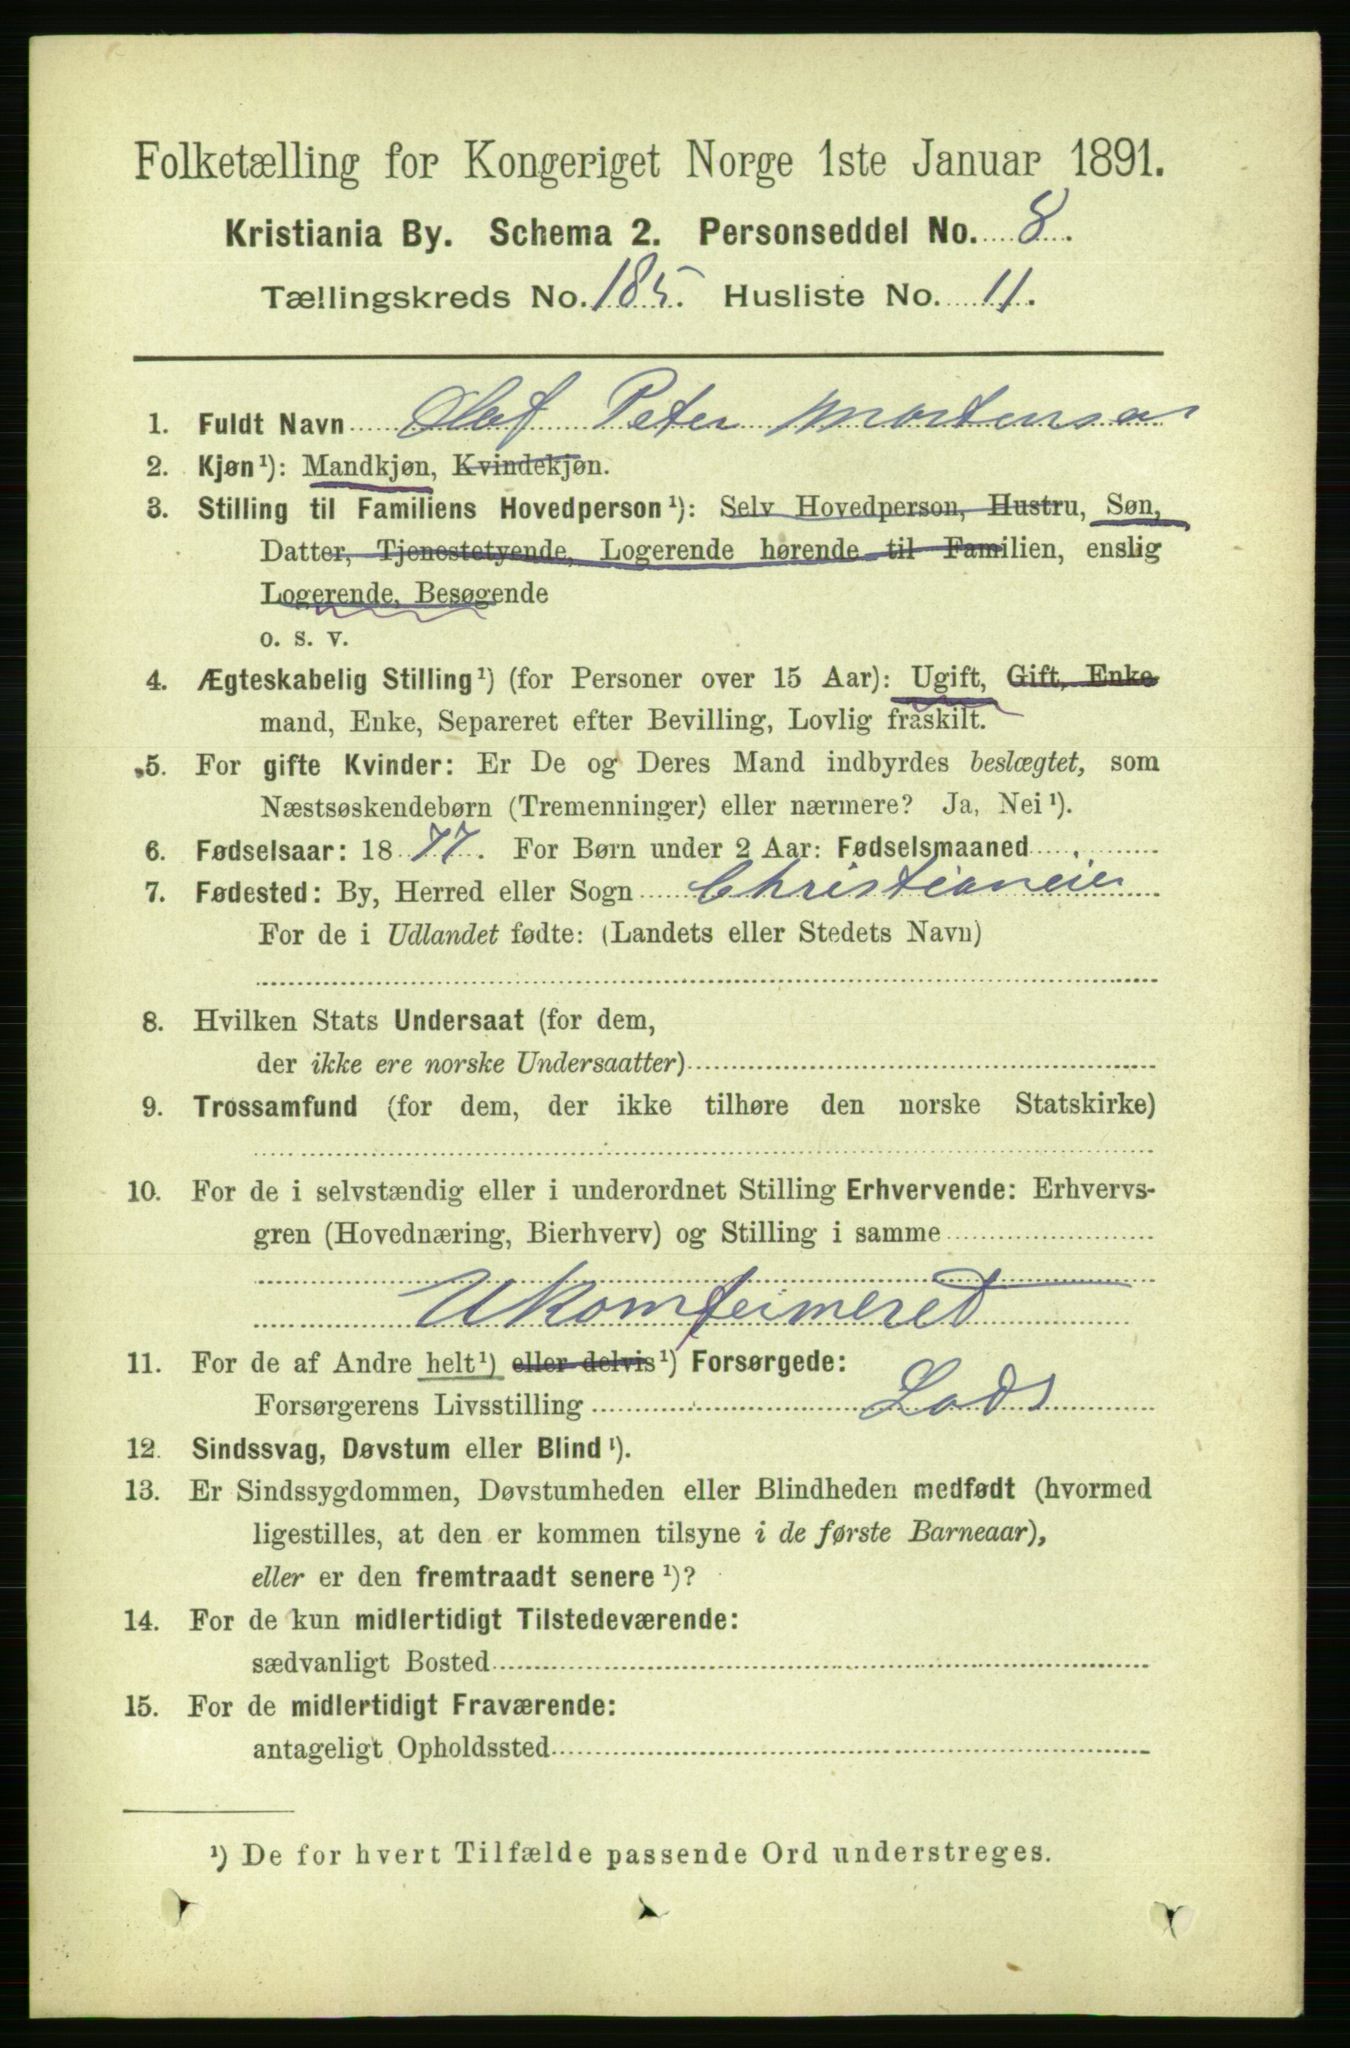 Folketælling for Kongeriget Norge 1ste Januar 1891.
Kristiania By. Schema 2. Personseddel No. 8.
Tællingskreds No. 185. Husliste No. 11.
1. Fuldt Navn Olaf Peter Mortensen
2. Kjøn¹): Mandkjøn, Kvindekjøn.
3. Stilling til Familiens Hovedperson¹): Selv Hovedperson, Hustru, Søn,
Datter, Tjenestetyende, Logerende hørende til Familien, enslig
Logerende, Besøgende
o. s. v.
4. Ægteskabelig Stilling¹) (for Personer over 15 Aar): Ugift, Gift, Enke
mand, Enke, Separeret efter Bevilling, Lovlig fraskilt.
5. For gifte Kvinder: Er De og Deres Mand indbyrdes beslægtet, som
Næstsøskendebørn (Tremenninger) eller nærmere? Ja, Nei¹).
6. Fødselsaar: 1877. For Børn under 2 Aar: Fødselsmaaned
7. Fødested: By, Herred eller Sogn Christianeia
For de i Udlandet fødte: (Landets eller Stedets Navn)
8. Hvilken Stats Undersaat (for dem,
der ikke ere norske Undersaatter)
9. Trossamfund (for dem, der ikke tilhøre den norske Statskirke)
10. For de i selvstændig eller i underordnet Stilling Erhvervende: Erhvervs-
gren (Hovednæring, Bierhverv) og Stilling i samme
Ukomfeimeret
11. For de af Andre helt¹) eller delvis¹) Forsørgede:
Forsørgerens Livsstilling Lods
12. Sindssvag, Døvstum eller Blind¹).
13. Er Sindssygdommen, Døvstumheden eller Blindheden medfødt (hvormed
ligestilles, at den er kommen tilsyne i de første Barneaar),
eller er den fremtraadt senere¹)?
14. For de kun midlertidigt Tilstedeværende:
sædvanligt Bosted
15. For de midlertidigt Fraværende:
antageligt Opholdssted
¹) De for hvert Tilfælde passende Ord understreges.